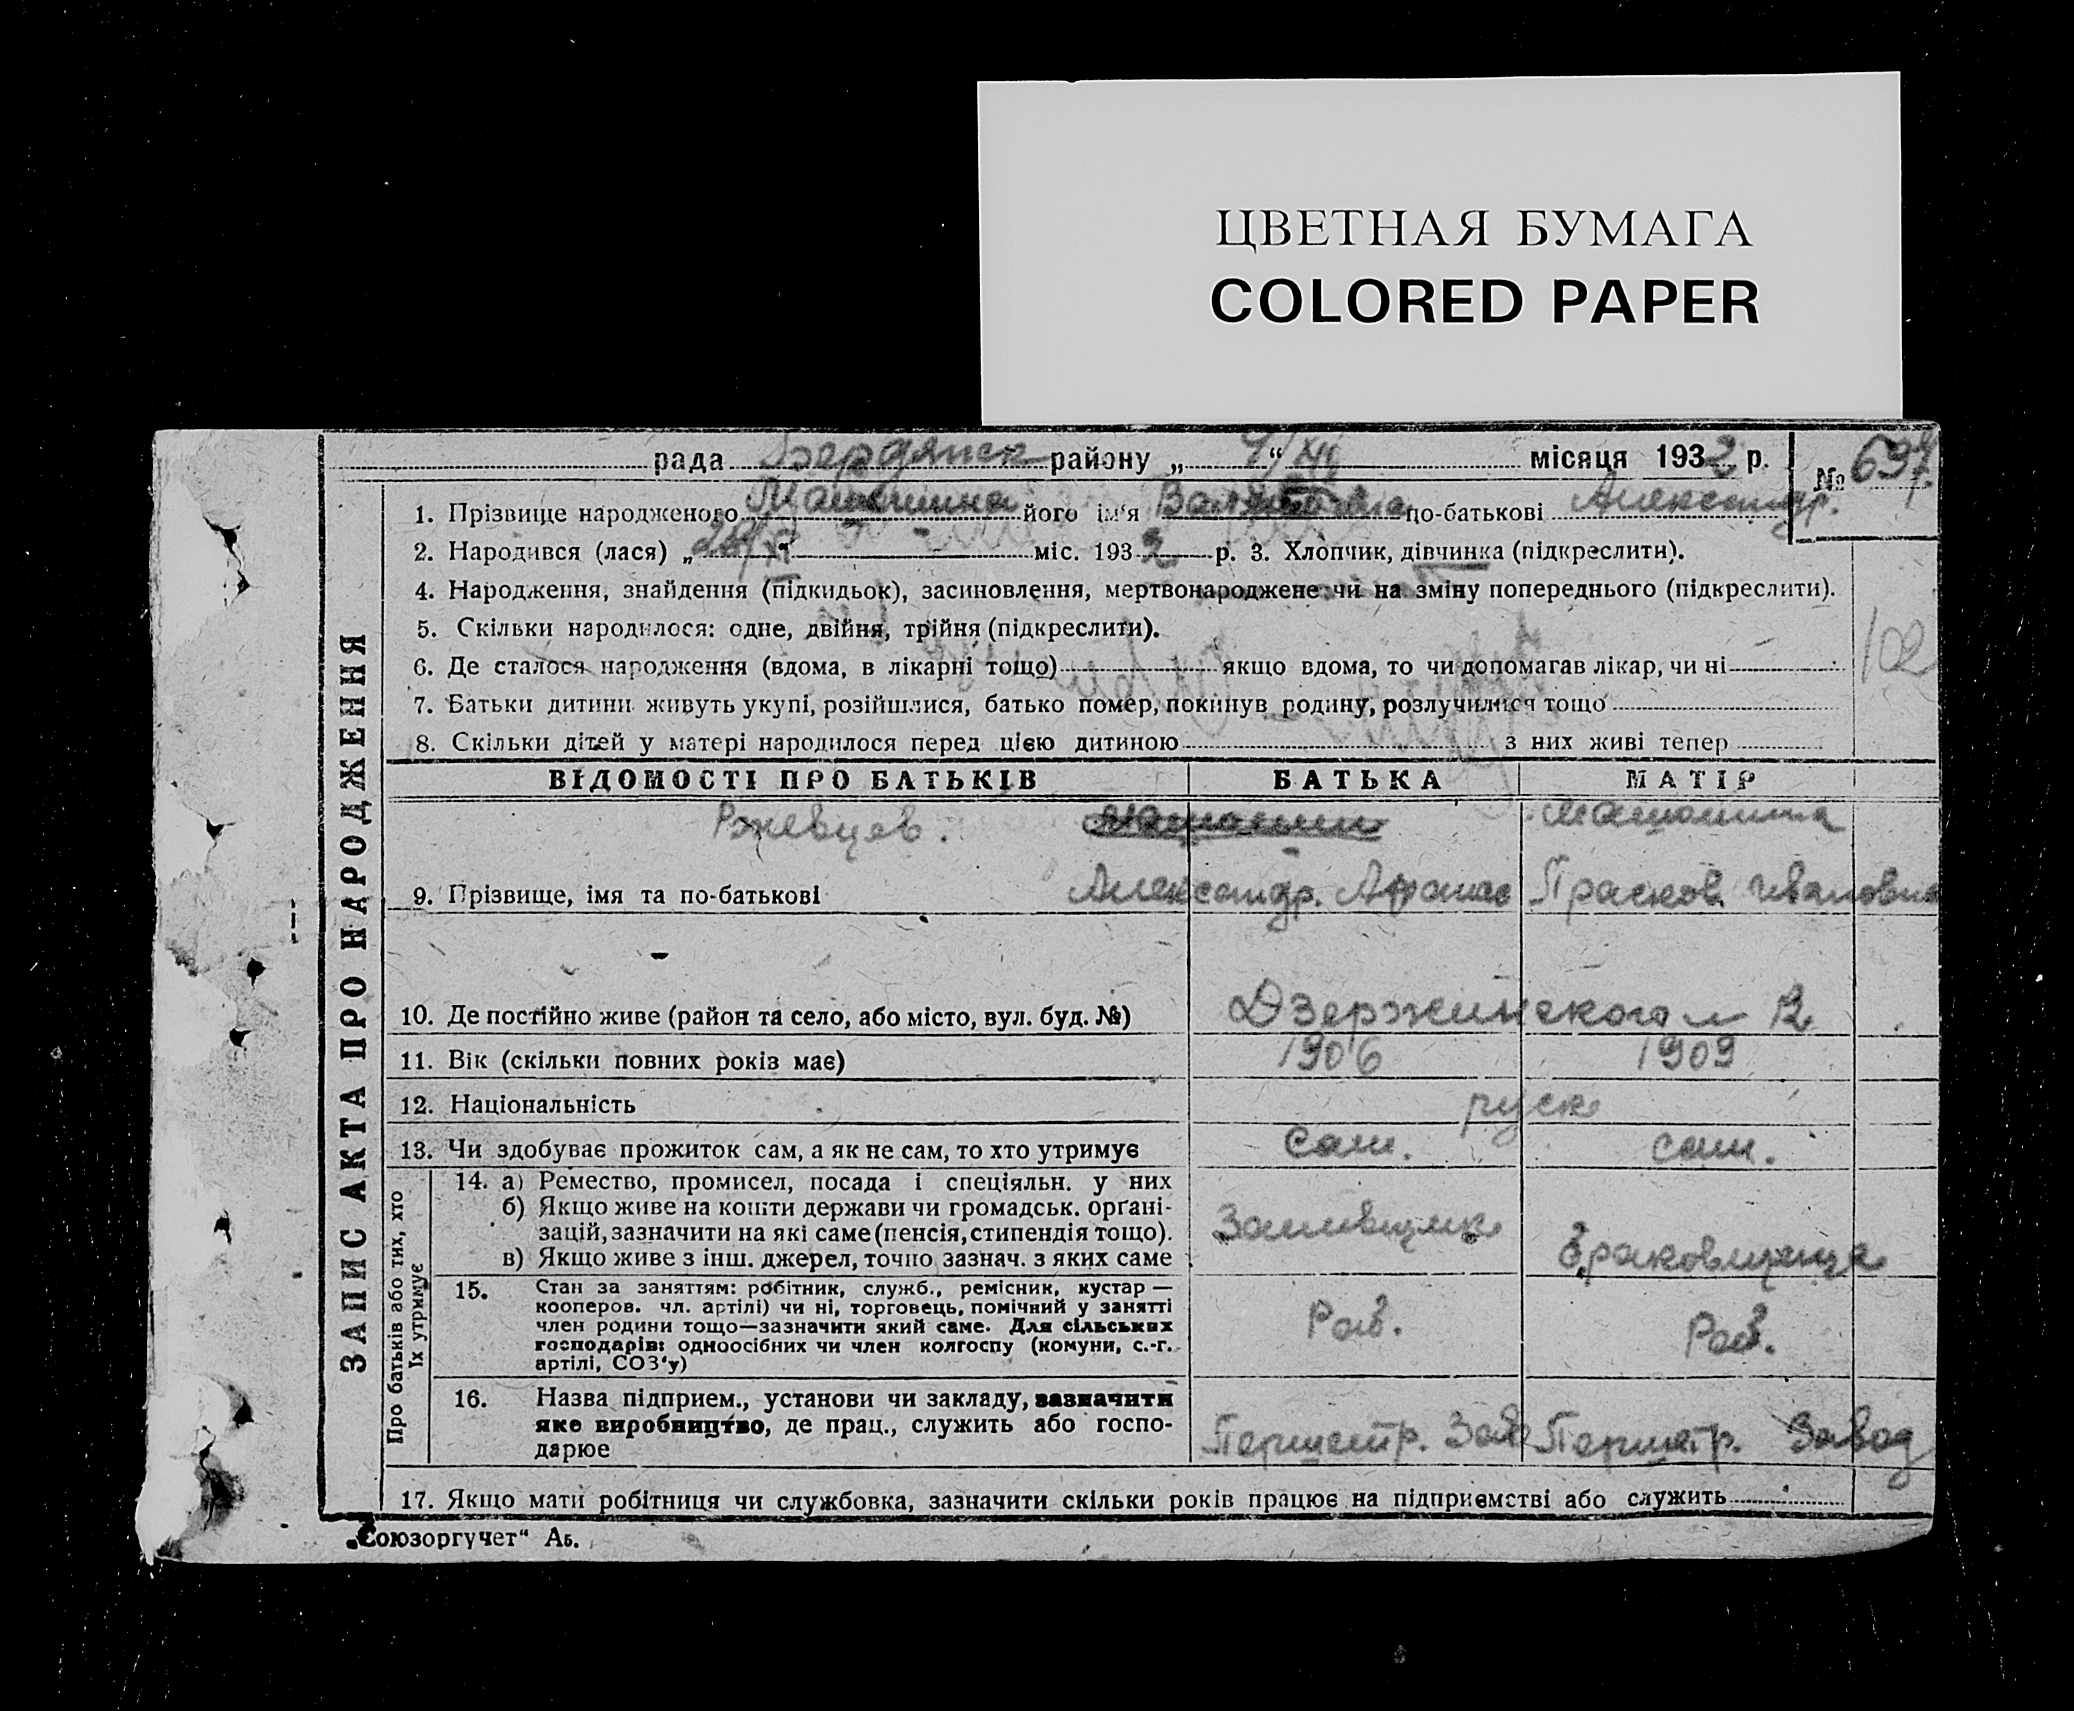 ЦВЕТНАЯ БУМАГА
COLORED PAPER
рада Бердянск району „ 4/XII “ місяця 1932 р. № 697
1. Прізвище народженого його ім'я по-батькові Александр.
2. Народився (лася) „ міс. 1932 р. 3. Хлопчик, дівчинка (підкреслити).
4. Народження, знайдення (підкидьок), засиновлення, мертвонароджене чи на зміну попереднього (підкреслити).
5. Скільки народилося: одне, двійня, трійня (підкреслити).
102
6. Де сталося народження (вдома, в лікарні тощо) якщо вдома, то чи допомагав лікар, чи ні
7. Батьки дитини живуть укупі, розійшлися, батько помер, покинув родину, розлучилися тощо
8. Скільки дітей у матері народилося перед цією дитиною з них живі тепер
ЗАПИС АКТА ПРО НАРОДЖЕННЯ
ВІДОМОСТІ ПРО БАТЬКІВ БАТЬКА МАТІР
Ржевцев. Машошина
9. Прізвище, імя та по-батькові Александр. Афанас Прасков. Ивановна
10. Де постійно живе (район та село, або місто, вул. буд. №) Дзержинского
11. Вік (скільки повних років має) 1906 1909
12. Національність руск
13. Чи здобуває прожиток сам, а як не сам, то хто утримує сам. сам.
Про батьків або тих, хто їх утримує
14. а) Ремество, промисел, посада і спеціяльн. у них
б) Якщо живе на кошти держави чи громадськ. орґані-
зацій, зазначити на які саме (пенсія, стипендія тощо).
в) Якщо живе з інш. джерел, точно зазнач. з яких саме
Заливщик Браковщица
15. Стан за заняттям: робітник, служб., ремісник, кустар —
кооперов. чл. артілі) чи ні, торговець, помічний у занятті
член родини тощо—зазначити який саме. Для сільських
господарів: одноосібних чи член колгоспу (комуни, с.-г.
артілі, СОЗ'у)
Раб. Раб.
16. Назва підприєм., установи чи закладу, зазначити
яке виробництво, де прац., служить або госпо-
дарює
Першетр. Зав Першетр. Завод
17. Якщо мати робітниця чи службовка, зазначити скільки років працює на підприємстві або служить
„Союзоргучет“ Аб.